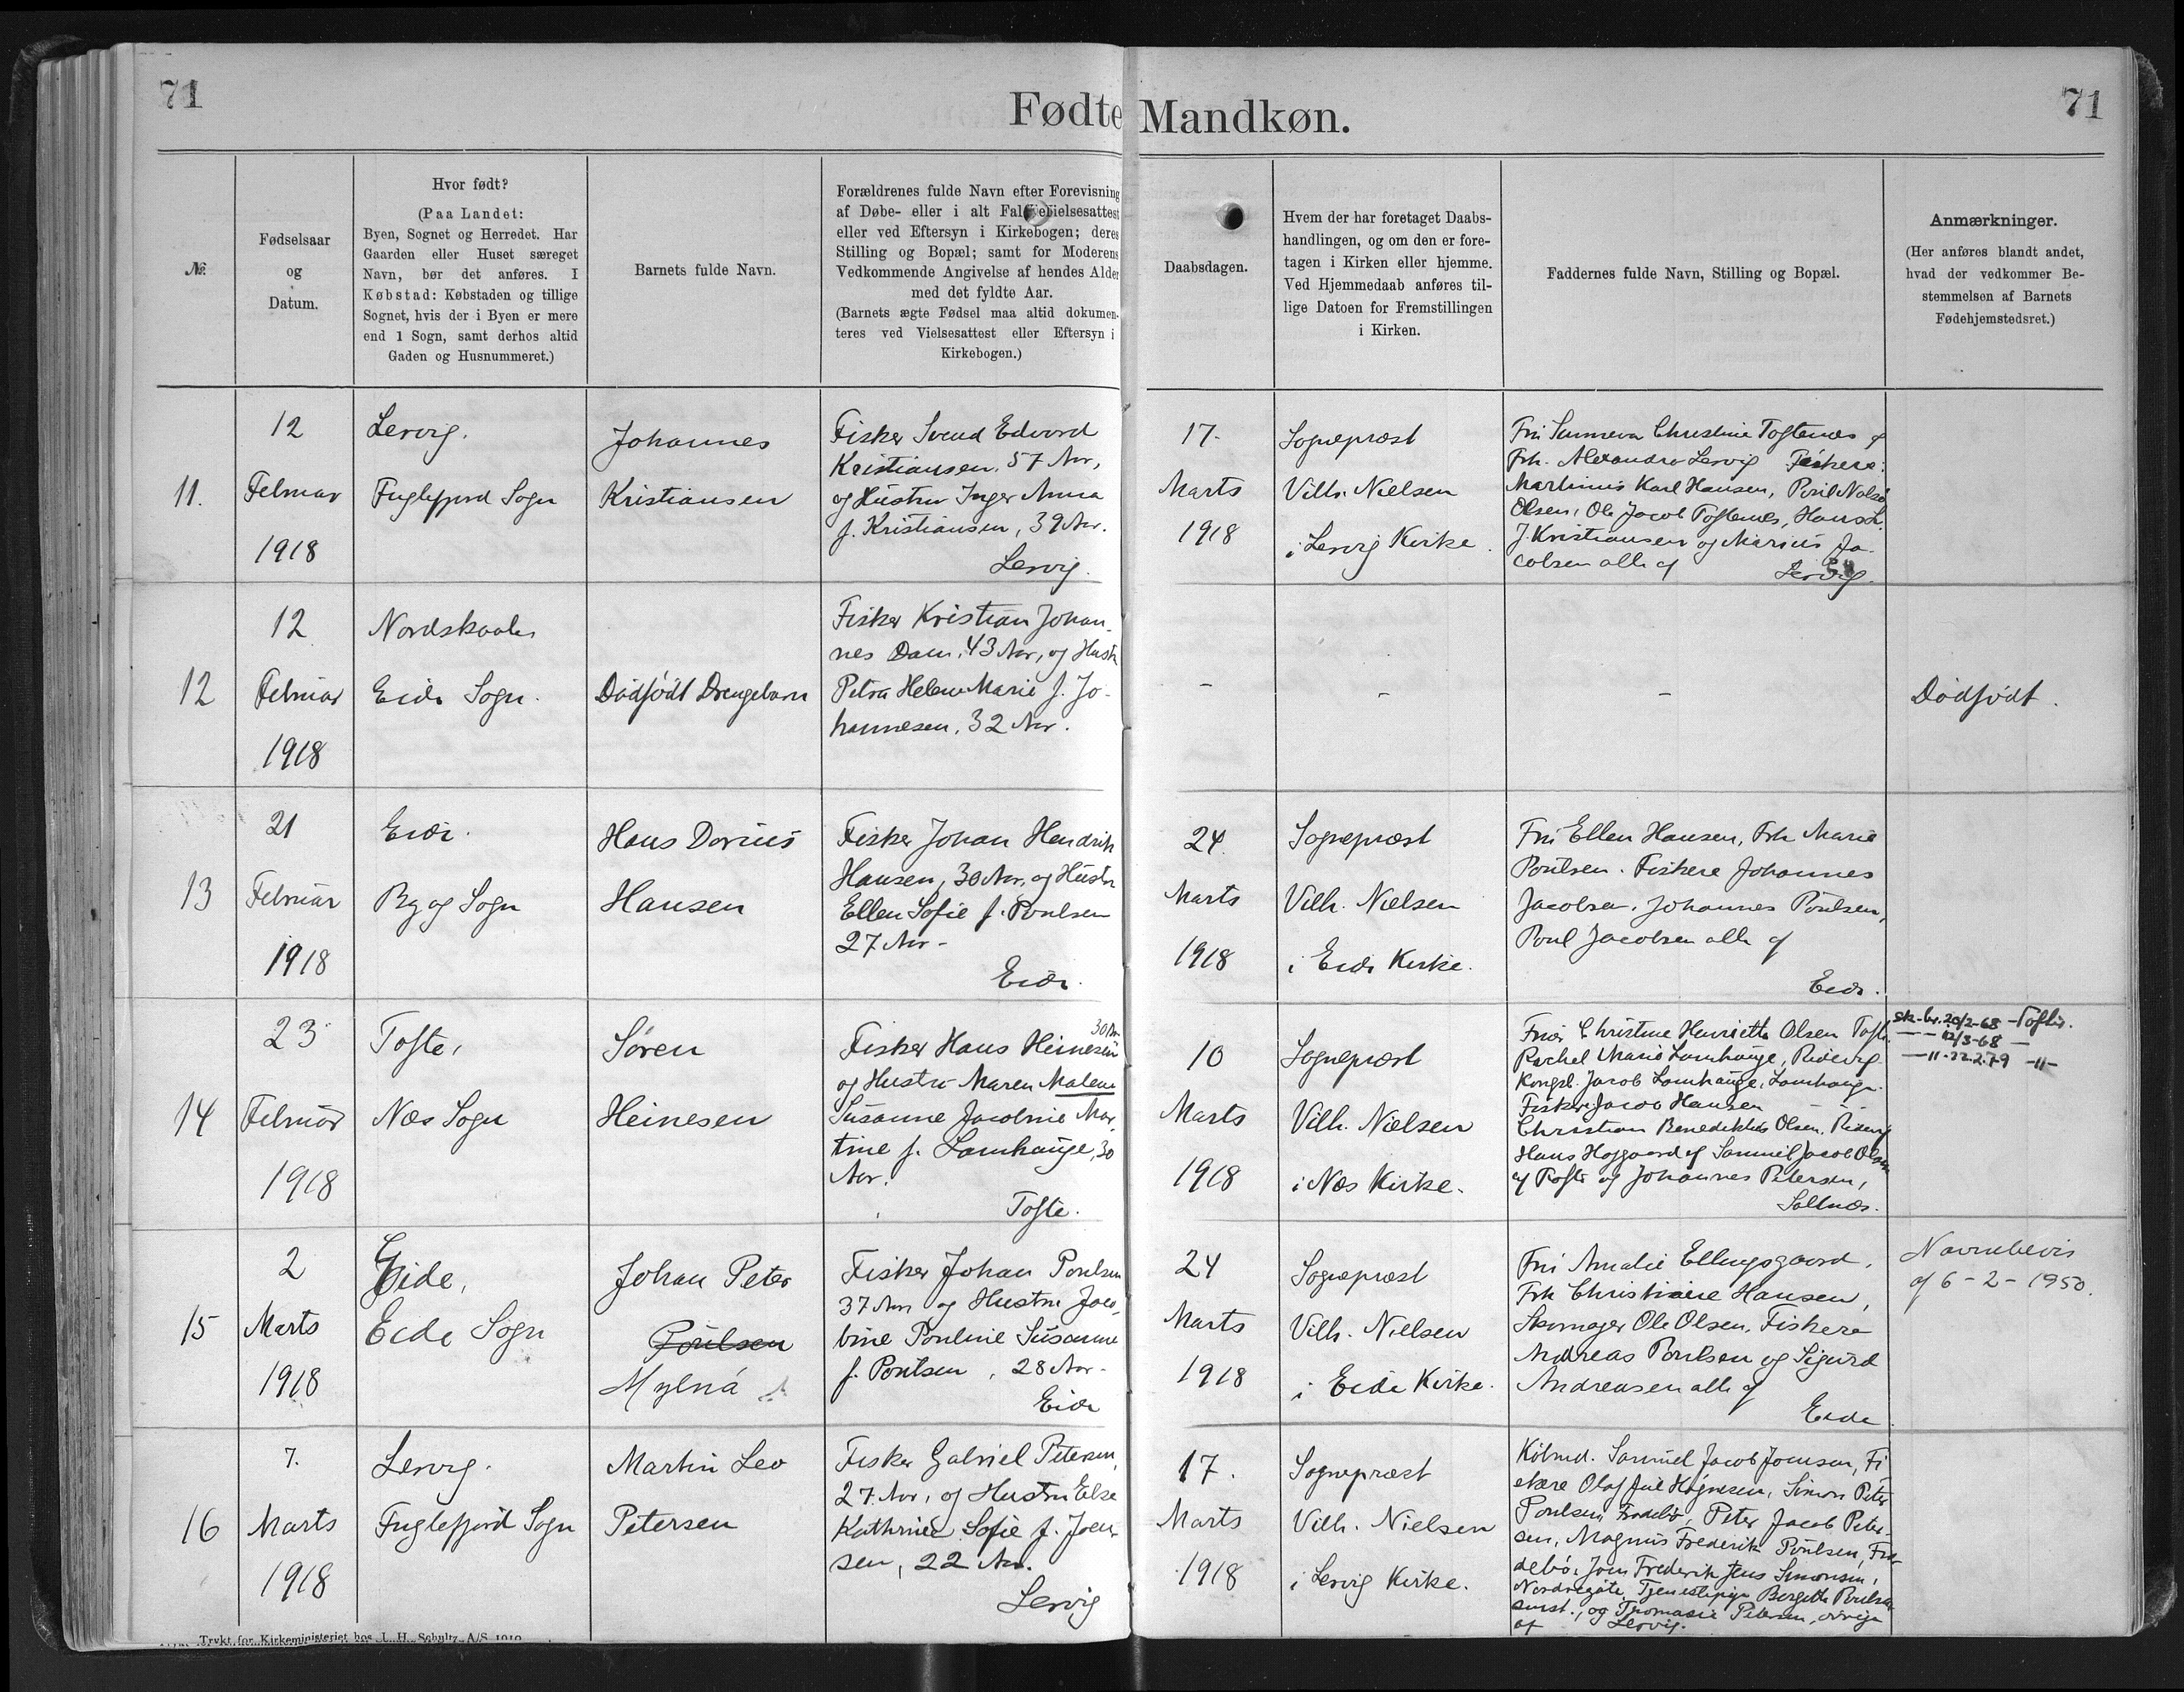 71
Fødte Mandkøn.
71
№
Fødselsaar
og
Datum.
Hvor født?
(Paa Landet:
Byen, Sognet og Herredet. Har
Gaarden eller Huset særeget
Navn, bør det anføres. I
Købstad: Købstaden og tillige
Sognet, hvis der i Byen er mere
end 1 Sogn, samt derhos altid
Gaden og Husnummeret.)
Barnets fulde Navn.
Forældrenes fulde Navn efter Forevisning
af Døbe- eller i alt Fald Vielsesattest
eller ved Eftersyn i Kirkebogen; deres
Stilling og Bopæl; samt for Moderens
Vedkommende Angivelse af hendes Alder
med det fyldte Aar.
(Barnets ægte Fødsel maa altid dokumen-
teres ved Vielsesattest eller Eftersyn i
Kirkebogen.)
Daabsdagen.
Hvem der har foretaget Daabs-
handlingen, og om den er fore-
tagen i Kirken eller hjemme.
Ved Hjemmedaab anføres til-
lige Datoen for Fremstillingen
i Kirken.
Faddernes fulde Navn, Stilling og Bopæl.
Anmærkninger.
(Her anføres blandt andet,
hvad der vedkommer Be-
stemmelsen af Barnets
Fødehjemstedsret.)
11.
12
Februar
1918
Lervig.
Fuglefjord Sogn
Johannes
Kristiansen
Fisker Svend Edvard
Kristiansen, 57 Aar,
og Hustru Inger Anna
f. Kristiansen, 39 Aar.
Lervig.
17.
Marts
1918
Sognepræst
Vilh. Nielsen
i Lervig Kirke.
Fru Sunneva Christine Toftenes og
Frk. Alexandra Lervig Fiskere:
Martinus Karl Hansen, Poul Nolsø
Olsen, Ole Jacob Toftenes, Hans
J. Kristiansen og Marius Ja-
cobsen alle af Lervig.
12
12
Februar
1918
Nordskaale
Eide Sogn.
Dødfødt Drengebarn
Fisker Kristian Johan-
nes Dam, 43 Aar, og Hustr
Petra Helene Marie f. Jo-
hannesen, 32 Aar.
-
-
-
Dødfødt.
13
21
Februar
1918
Eide.
By og Sogn
Hans Dorius
Hansen
Fisker Johan Hendrik
Hansen, 30 Aar, og Hustr
Ellen Sofie f. Poulsen
27 Aar-
Eide.
24.
Marts
1918
Sognepræst
Vilh. Nielsen
i Eide Kirke.
Fru Ellen Hansen, Frk Marie
Poulsen. Fiskere Johannes
Jacobsen, Johannes Poulsen,
Poul Jacobsen alle af
Eide.
14
23
Februar
1918
Tofte,
Næs Sogn
Søren
Heinesen
30 Aar
Fisker Hans Heinesen
og Hustru Maren Malene
Susanne Jacobine Mar-
tine f. Lamhauge, 30
Aar.
Tofte.
10
Marts
1918
Sognepræst
Vilh. Nielsen
i Næs Kirke.
Fruer Christine Henriette Olsen Tofte,
Rachel Marie Lamhauge, Ridevig
Kongsb. Jacob Lamhauge, Lamhauge.
Fisker Jacob Hansen
Christian Benediktus Olsen, Ridevig
Hans Højgaard og Samuel Jacob Olsen
af Tofte og Johannes Petersen,
Saltnæs.
Sk.-br. 20/2-68 -Toftir.
— — 12/3-68 —
—11- 22.2.79 -11-
15
2
Marts
1918
Eide,
Eide Sogn
Johan Peter
Poulsen
Mylná
Fisker Johan Poulsen
37 Aar og Hustru Jaco-
bine Pouline Susanne
f. Poulsen, 28 Aar-
Eide
24
Marts
1918
Sognepræst
Vilh. Nielsen
i Eide Kirke.
Fru Amalie Ellingsgaard,
Frk Christiane Hansen,
Skomager Ole Olsen, Fiskere
Andreas Poulsen og Sigurd
Andreasen alle af
Eide.
Navnebevis
af 6-2-1950.
16
7.
Marts
1918
Lervig.
Fuglefjord Sogn
Martin Leo
Petersen
Fisker Gabriel Petersen,
27 Aar, og Hustru Else
Kathrine Sofie f. Joen-
sen, 22 Aar.
Lervig
17.
Marts
1918
Sognepræst
Vilh. Nielsen
i Lervig Kirke.
Købmd. Samuel Jacob Joensen, Fi
skere Olaf Juel Højnesen, Simon Peter
Poulsen, Fradebø, Peter Jacob Peter-
sen, Magnus Frederik Poulsen, Fra-
debø, Joen Frederik Jens Simonsen,
Nordregøte, Tjenestepige Bergitte Poulsen
smst., og Thomasia Petersen, øvrige
af Lervig.
Trykt for Kirkeministeriet hos J. H. Schultz A/S 1910